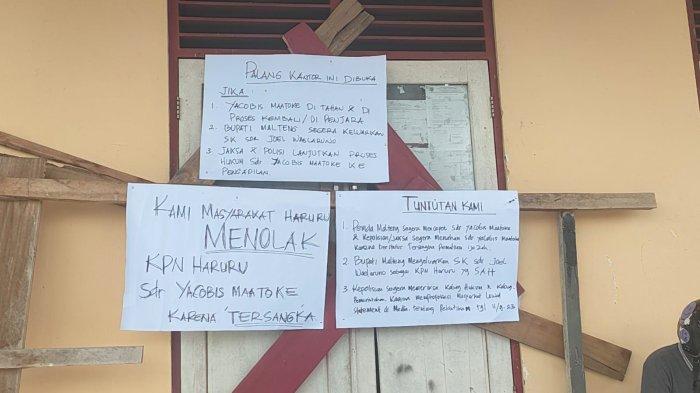 PALANG KANTOR INI DIBUKA
JIKA :
1. YACOBIS MAATOKE DI TAHAN & DI
PROSES KEMBALI / DI PENJARA
2. BUPATI MALTENG SEGERA KELUARKAN
SK SDR JOEL WAELARUNO
3. JAKSA & POLISI LANJUTKAN PROSES
HUKUM Sdr YACOBIS MAATOKE KE
PENGADILAN.
KAMI MASYARAKAT HARURU
MENOLAK
KPN HARURU
Sdr YACOBIS MAATOKE
KARENA TERSANGKA.
TUNTUTAN KAMI
1. Pemda Malteng segera mencopot Sdr Yacobis Maatoke
& Kepolisian/Jaksa segera menahan Sdr Yacobis Maatoke
Karena berstatus Tersangka Pemalsuan ijazah.
2. Bupati Malteng mengeluarkan SK sdr Joel
Waelaruno sebagai KPN Haruru yg SAH
3. Kepolisian segera memeriksa Kabag Hukum & Kabag
Pemerintahan Karena masyarakat Lewat
statement di Media. tgl